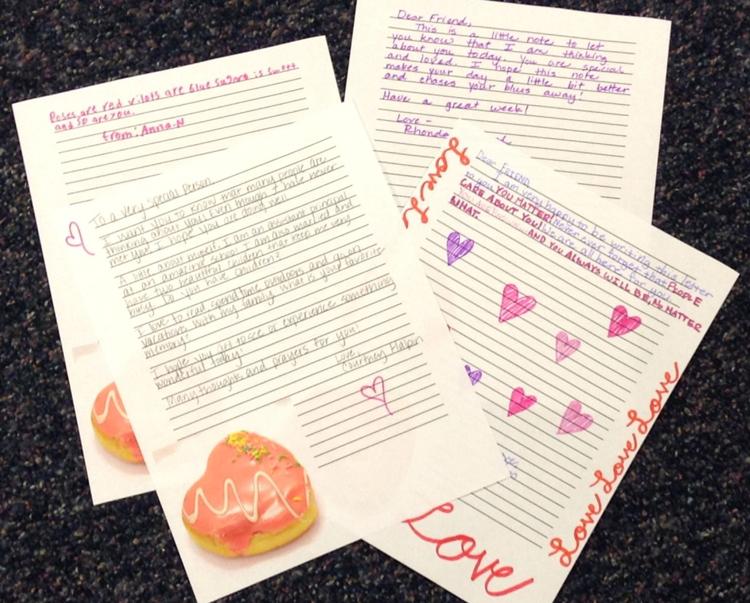 Roses are red vilots are blue sugare is sweet
and so are you.
from: Anna.N
Dear Friend,
This is a little note to let
you know that I am thinking
about you today. You are special
and loved. I hope this note
makes your day a little bit better
and chases your blues away!
Have a great week!
Love -
Rhonda
To a very special Person,
I want you to know that many people are
thinking about you! Even though I have never
met you I hope you are doing well.
A little about myself, I am an assistant principal
at an amazing school. I am also married and
have two beautiful children that keep me very
busy. Do you have children?
I love to read, spend time outdoors and go on
vacations with my family. What is your favorite
memory?
I hope you get to see or experience something
wonderful today!
Many thoughts and prayers for you!
Love,
Courtney Halpin
Love
Dear FRIEND,
I am very happy to be writing this letter
to you. YOU MATTER! Never ever forget that PEOPLE
CARE ABOUT YOU! We are all here for you.
AND YOU ALWAYS WILL BE, NO MATTER
WHAT.
Love Love Love
Love